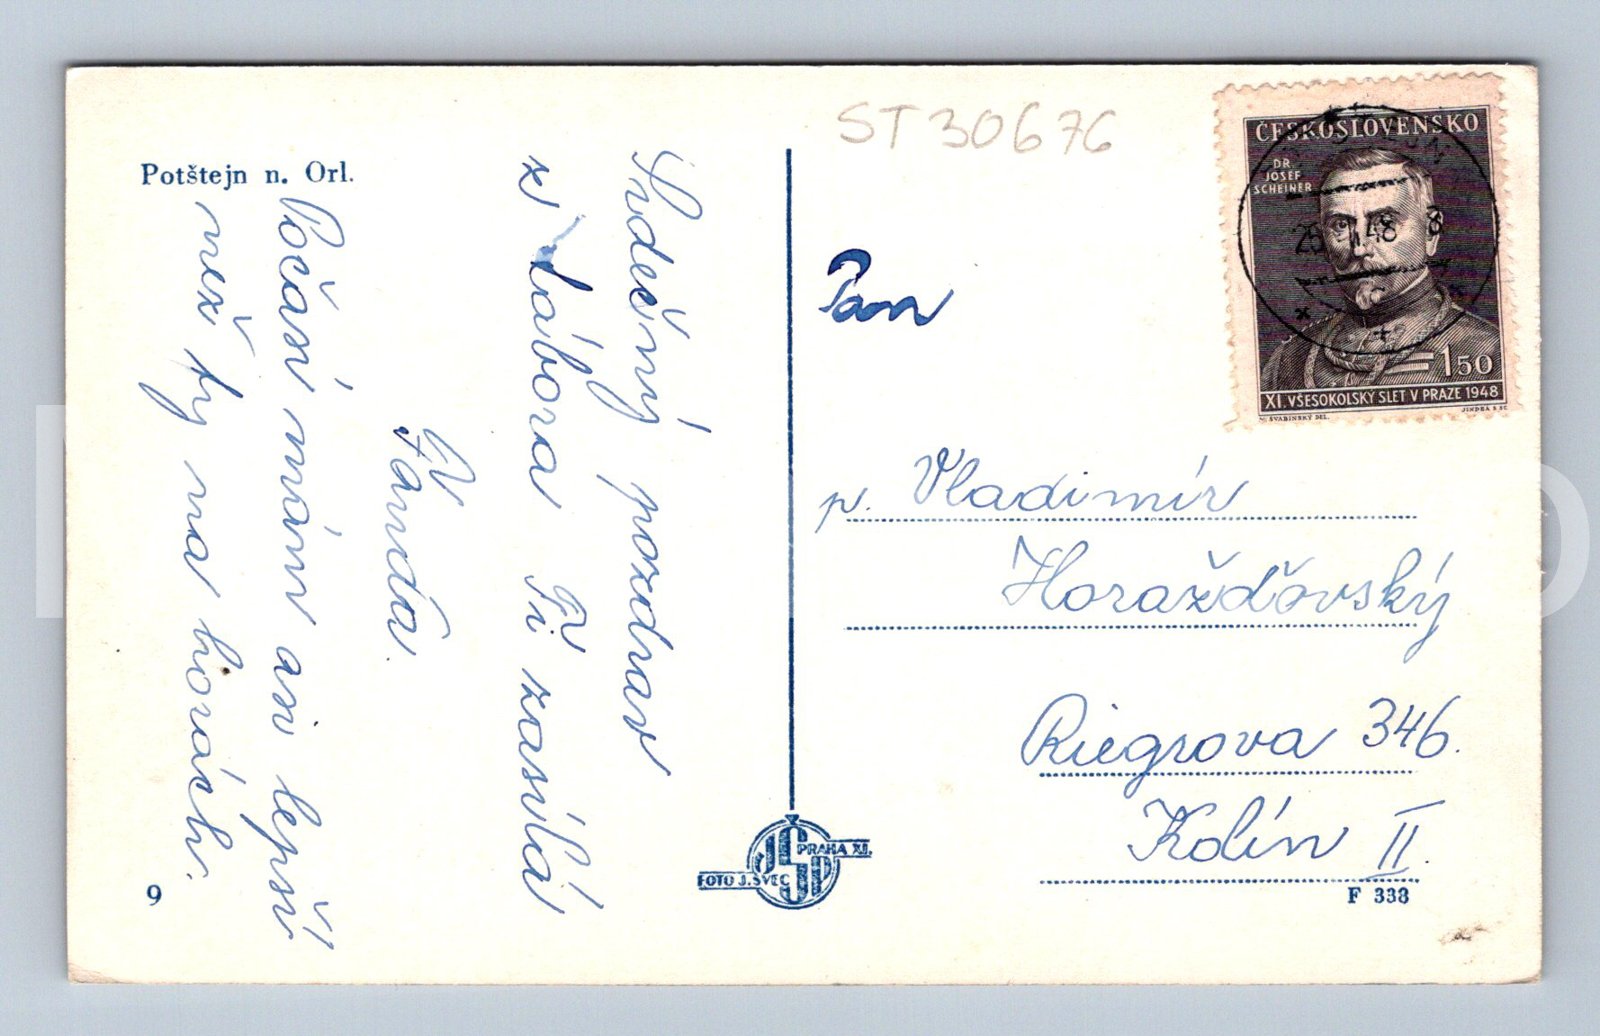 ST30676
Potštejn n. Orl.
Srdečný pozdrav
z tábora Ti zasílá
Vl. Fanda.
Počasí mám asi lepší
než ty na horách.
Pan
p. Vladimír
Horažďovský
Riegrova 346.
Kolín II.
ČESKOSLOVENSKO
DR.
JOSEF
SCHEINER
1.50
XI. VŠESOKOLSKÝ SLET V PRAZE 1948
M. ŠVABINSKÝ DEL.
JINDRA SC.
48 8
JŠP
PRAHA XI.
FOTO J. ŠVEC
9
F 338